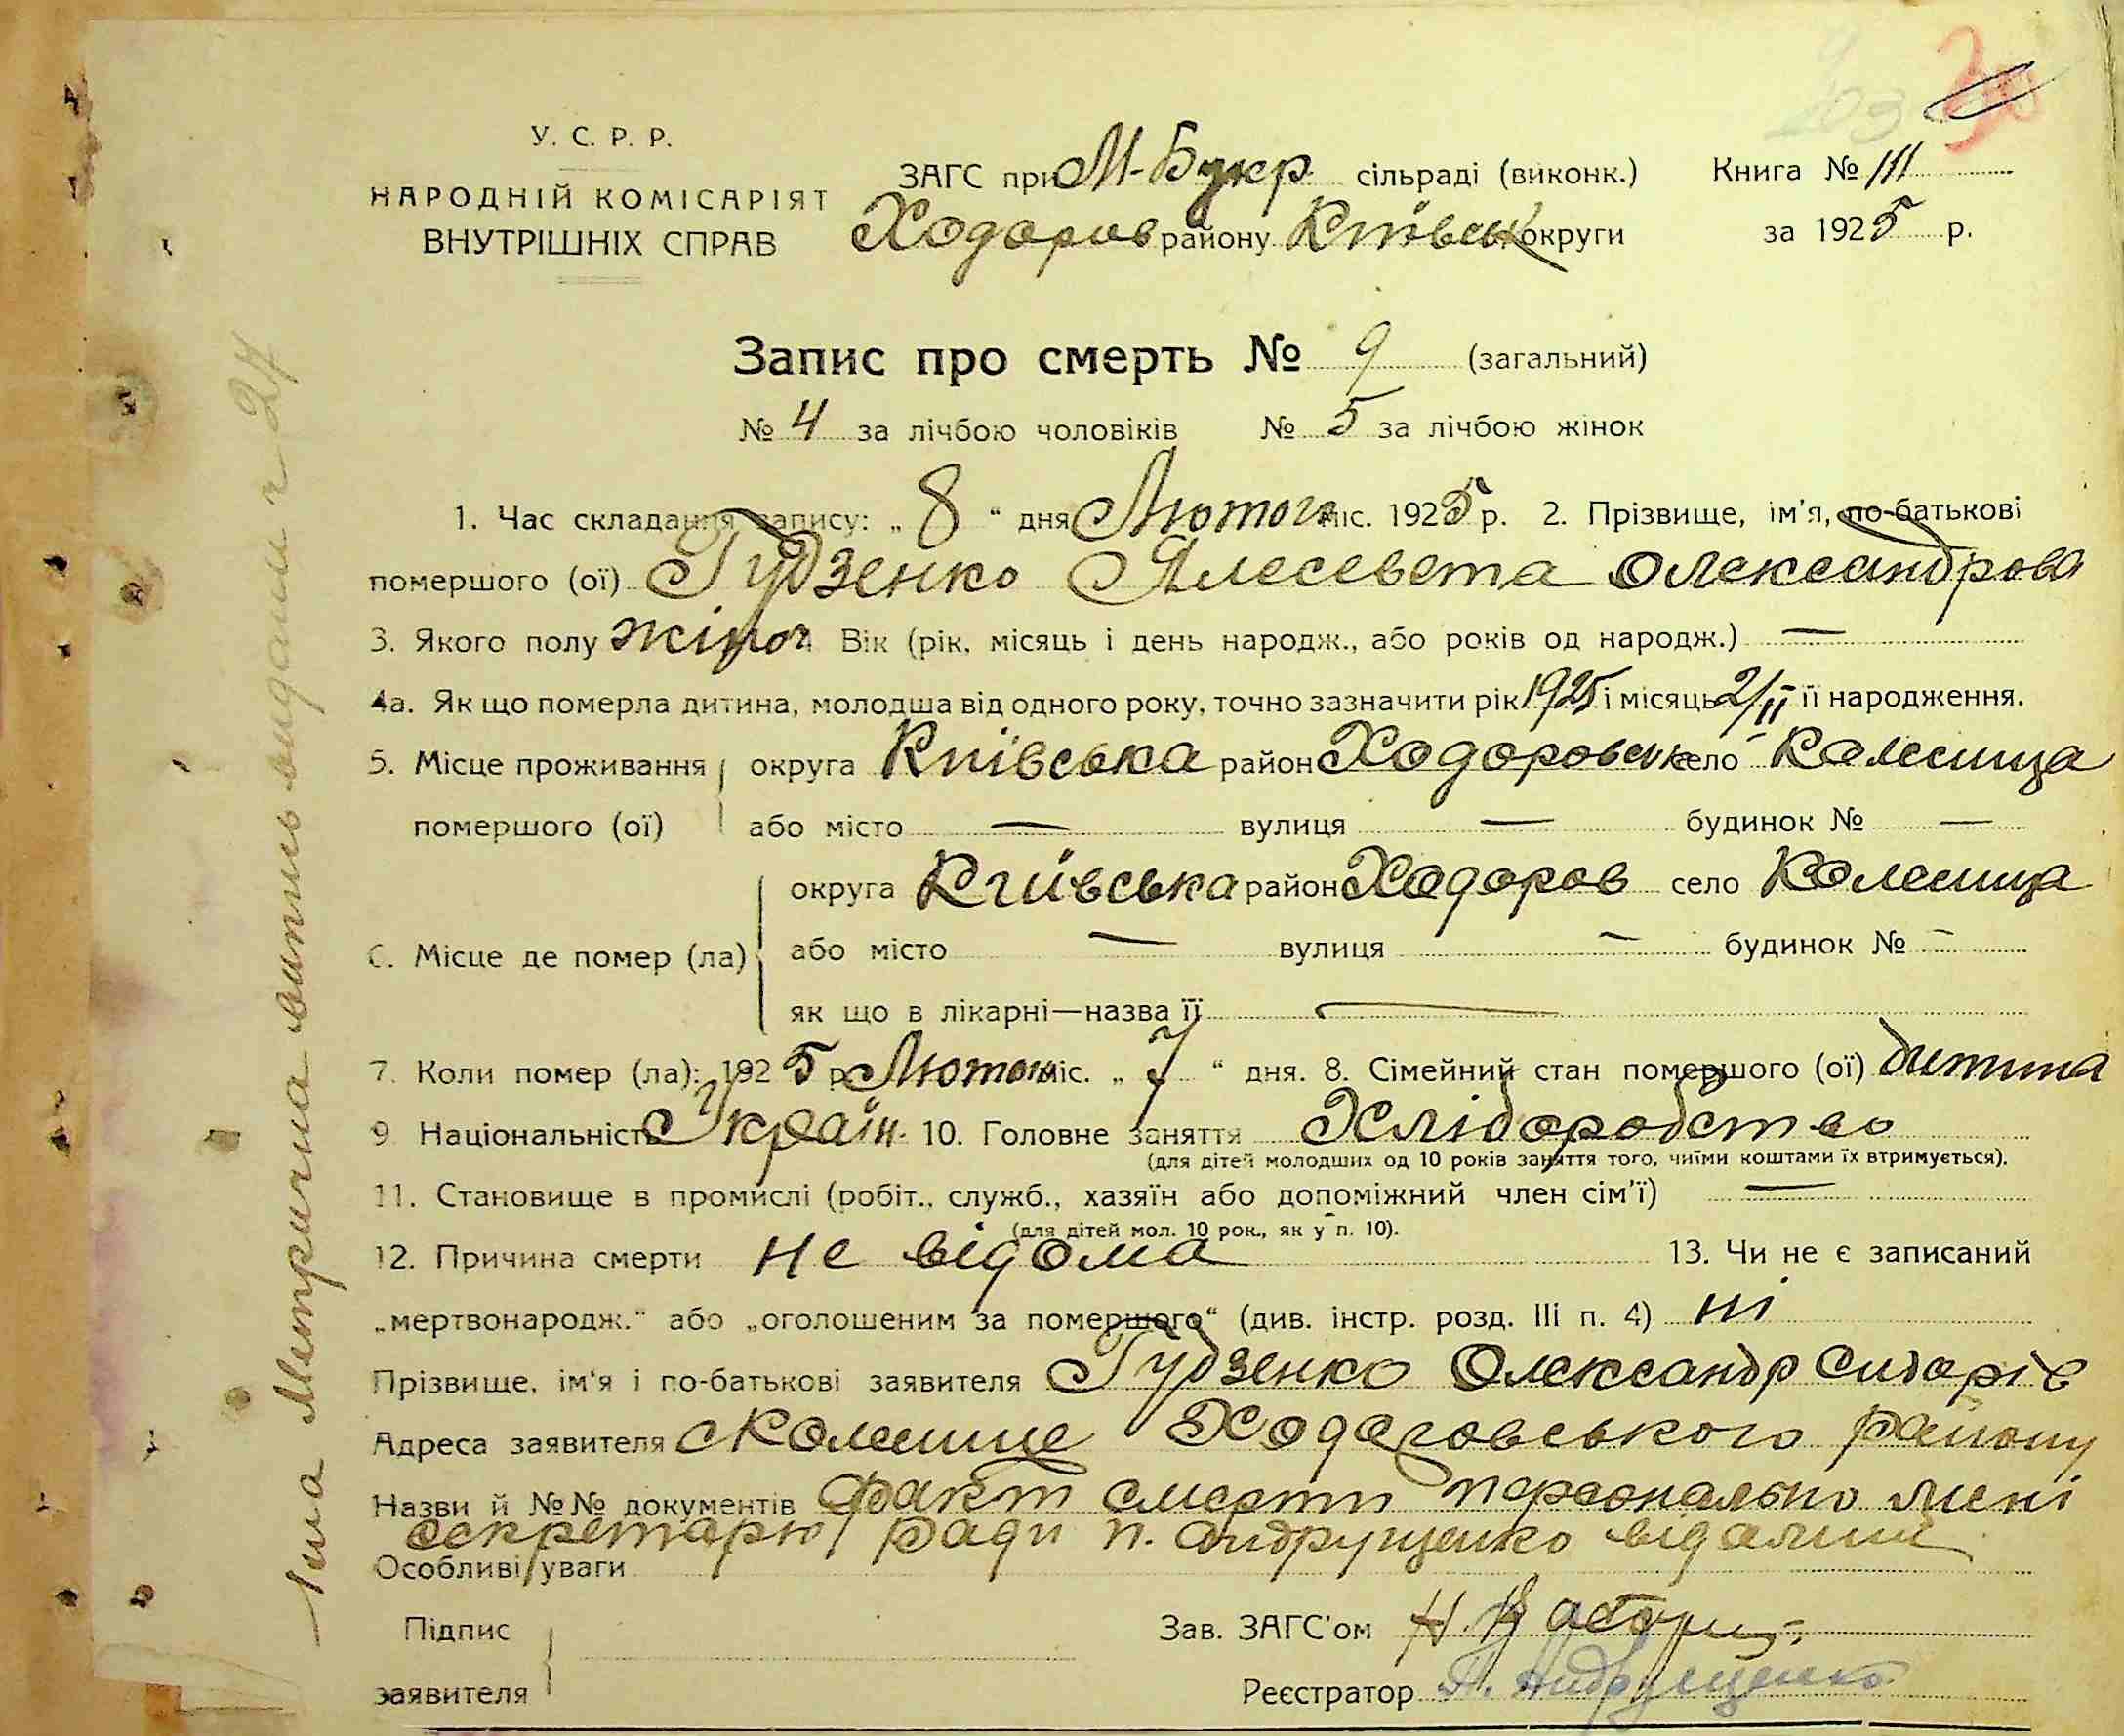 203 30
У. С. Р. Р.
НАРОДНІЙ КОМІСАРІЯТ
ВНУТРІШНІХ СПРАВ
ЗАГС при М-Букр. сільраді (виконк.) Книга № III
Ходоров району Київськ округи за 1925 р.
Запис про смерть № 9 (загальний)
№ 4 за лічбою чоловіків № 5 за лічбою жінок
1. Час складання запису: „ 8 “ дня Лютого міс. 1925 р. 2. Прізвище, ім'я, по-батькові
помершого (ої) Гудзенко Ялесевета Олександрова
3. Якого полу жіноч. Вік (рік, місяць і день народж., або років од народж.) —
4а. Як що померла дитина, молодша від одного року, точно зазначити рік 1925 і місяць 2/II її народження.
5. Місце проживання округа Київська район Ходоровськ село Колесища
помершого (ої) або місто — вулиця — будинок № —
округа Київська район Ходоров село Колесища
6. Місце де помер (ла) або місто — вулиця — будинок № —
як що в лікарні—назва її —
7. Коли помер (ла): 1925 р. Лютого міс. „ 7 “ дня. 8. Сімейний стан помершого (ої) дитина
9 Національність Україн. 10. Головне заняття Хліборобство
(для дітей молодших од 10 років заняття того, чиїми коштами їх втримується).
11. Становище в промислі (робіт., служб., хазяїн або допоміжний член сім'ї) —
(для дітей мол. 10 рок., як у п. 10).
12. Причина смерти не відома 13. Чи не є записаний
„мертвонародж.“ або „оголошеним за помершого“ (див. інстр. розд. III п. 4) ні
Прізвище, ім'я і по-батькові заявителя Гудзенко Олександр Сидорів
Адреса заявителя с Колесище Ходоровського району
Назви й №№ документів Факт смерти персонально мені
секретарю ради П. Андрущенко відомий
Особливі уваги
Підпис Зав. ЗАГС'ом
заявителя Реєстратор П. Андрущенко
Метрична витпись видана